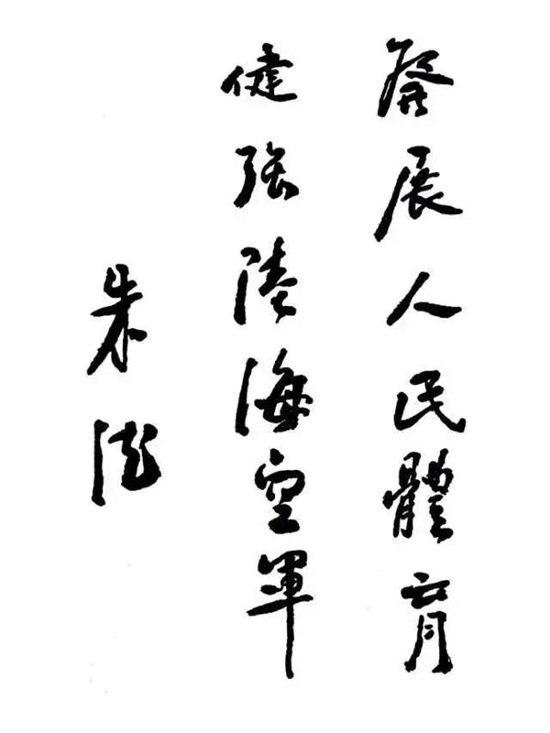 發展人民體育
健强陸海空軍
朱德